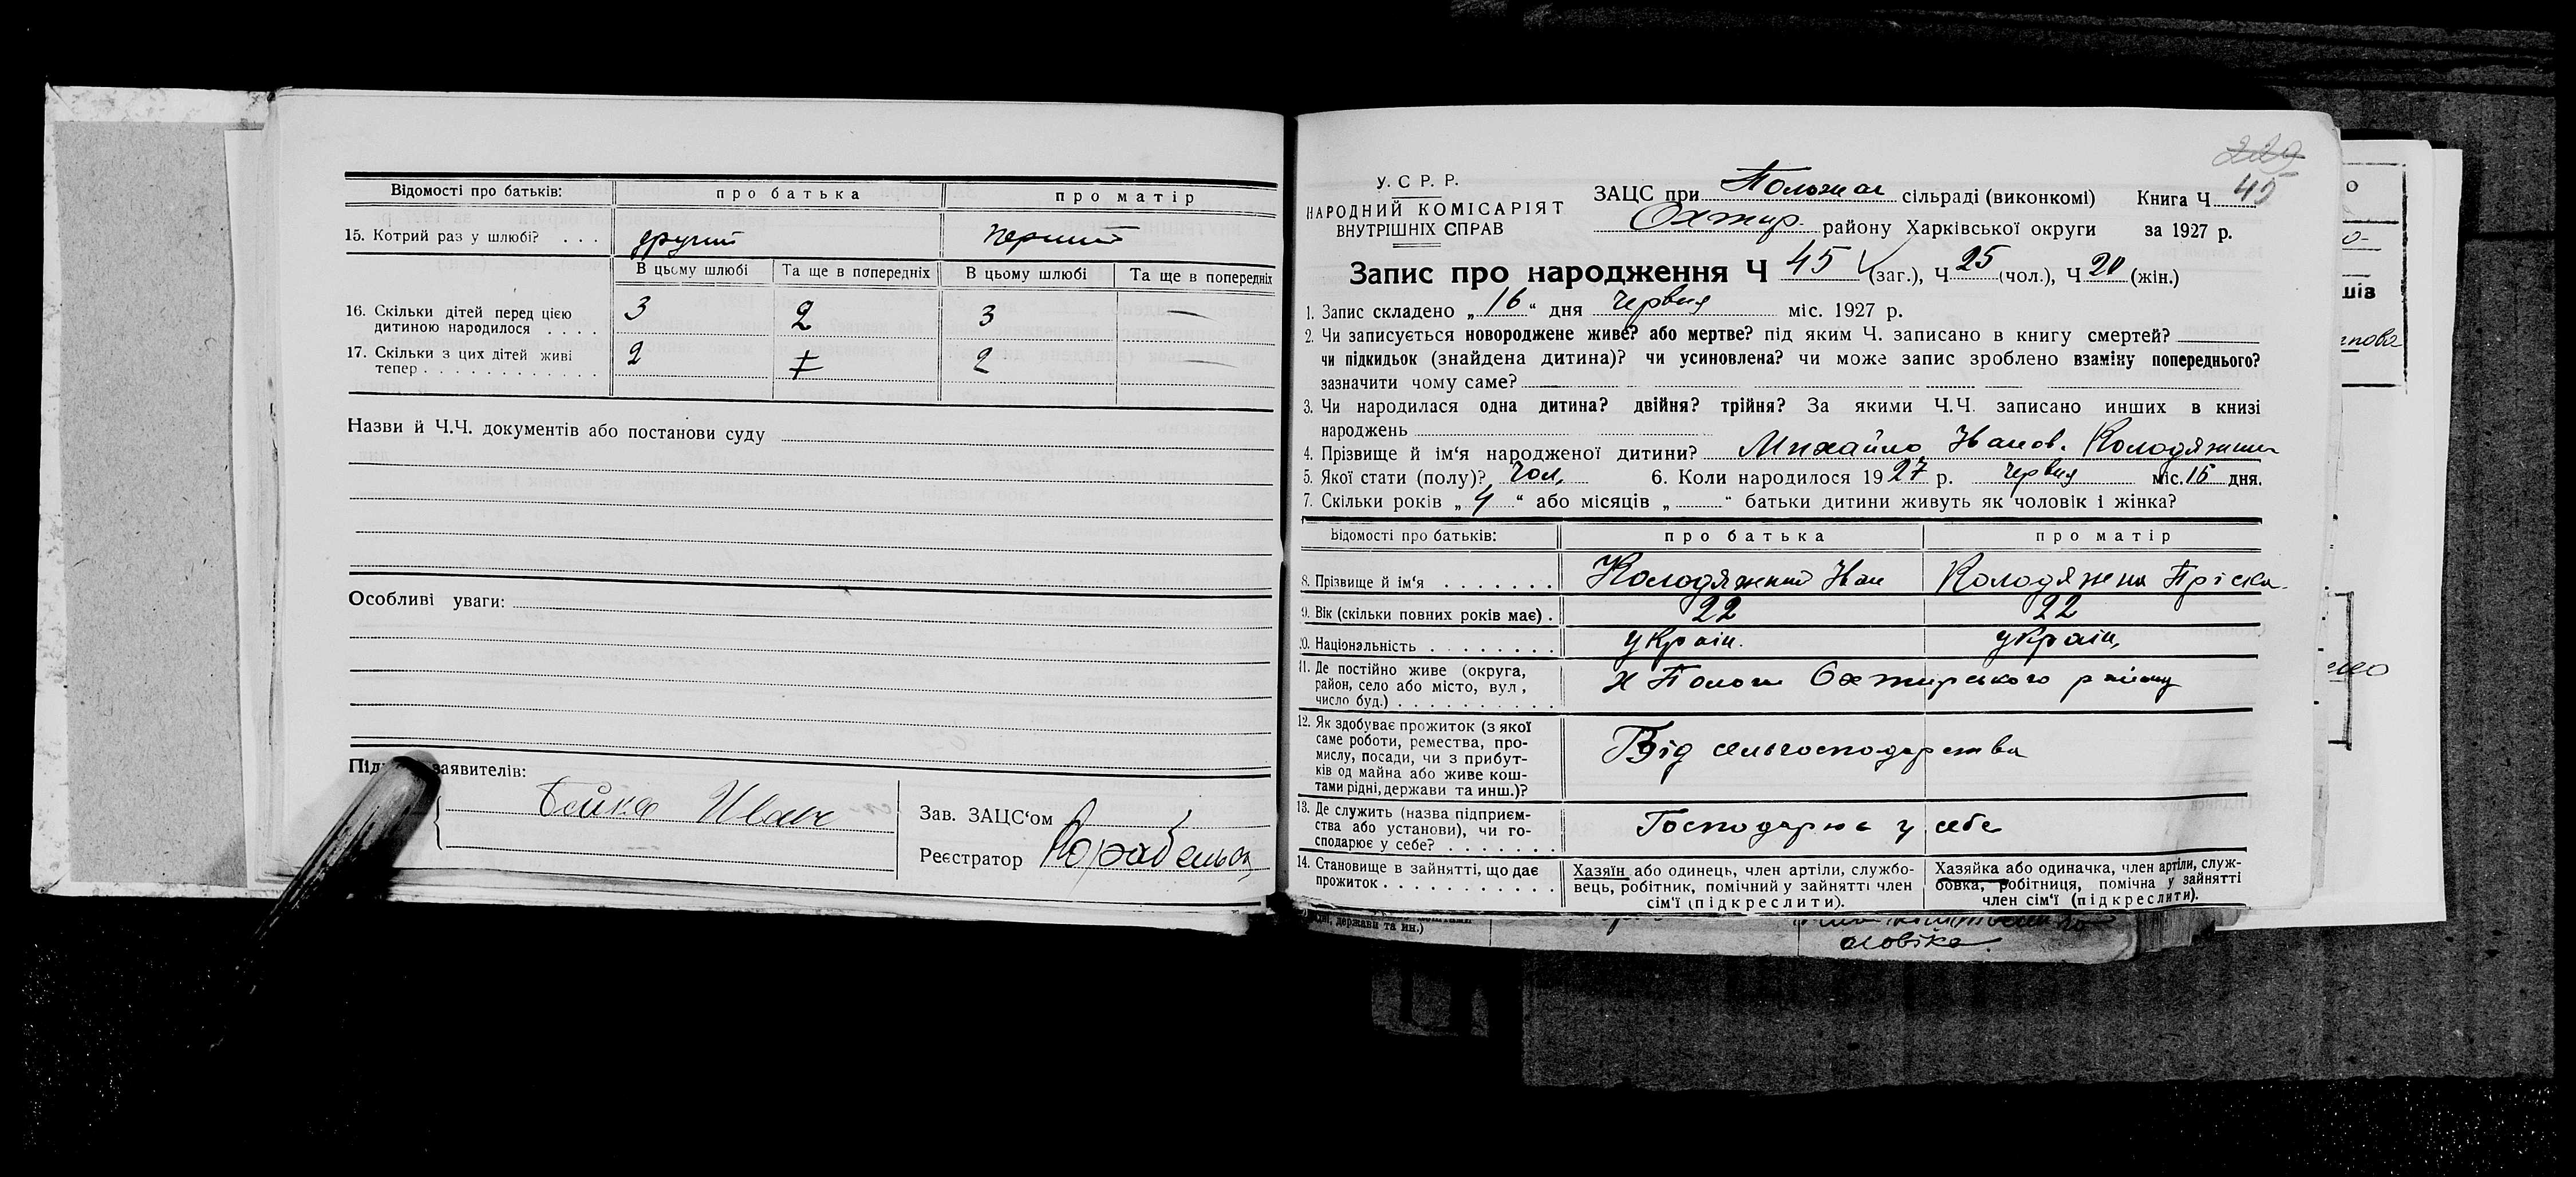 Відомості про батьків: про батька про матір
15. Котрий раз у шлюбі? . . . другий перший
В цьому шлюбі Та ще в попередніх В цьому шлюбі Та ще в попередніх
16. Скільки дітей перед цією
дитиною народилося . . . . 3 2 3 —
17. Скільки з цих дітей живі
тепер . . . . . . . . . . . . 2 2 —
Назви й Ч.Ч. документів або постанови суду
Особливі уваги:
заявителів:
Бойко Иван
Зав. ЗАЦС‘ом
Реєстратор
229
У. С Р. Р.
НАРОДНИЙ КОМІСАРІЯТ
ВНУТРІШНІХ СПРАВ
ЗАЦС при сільраді (виконкомі) Книга Ч. 45
Охтир. району Харківської округи за 1927 р.
Запис про народження Ч 45 (заг.), Ч 25 (чол.), Ч 20 (жін.)
1. Запис складено „16“ дня Червня міс. 1927 р.
2. Чи записується новороджене живе? або мертве? під яким Ч. записано в книгу смертей?
чи підкидьок (знайдена дитина)? чи усиновлена? чи може запис зроблено взаміну попереднього?
зазначити чому саме?
3. Чи народилася одна дитина? двійня? трійня? За якими Ч.Ч. записано инших в книзі
народжень
4. Прізвище й ім‘я народженої дитини? Михайло Іванов. Колодяжний
5. Якої стати (полу)? Чол. 6. Коли народилося 1927 р. Червня міс. 15 дня.
7. Скільки років „4“ або місяців „ “ батьки дитини живуть як чоловік і жінка?
Відомості про батьків: про батька про матір
8. Прізвище й ім‘я . . . . . . . Колодяжний Іван Колодяжна Пріська
9. Вік (скільки повних років має) . 22 22
10. Національність . . . . . . . . україн. україн.
11. Де постійно живе (округа,
район, село або місто, вул,
число буд.) . . . . . . . . . . х Пологи Охтирського району
12. Як здобуває прожиток (з якої
саме роботи, ремества, про-
мислу, посади, чи з прибут-
ків од майна або живе кош-
тами рідні, держави та инш.)? Від сельгосподарства
13. Де служить (назва підприєм-
ства або установи), чи го-
сподарює у себе? . . . . . . . Господарює у себе
14. Становище в зайнятті, що дає
прожиток . . . . . . . . . . .
Хазяїн або одинець, член артіли, службо-
вець, робітник, помічний у зайнятті член
сім‘ї (підкреслити).
Хазяйка або одиначка, член артіли, служ-
бовка, робітниця, помічна у зайнятті
член сім‘ї (підкреслити).
держави та ин.)